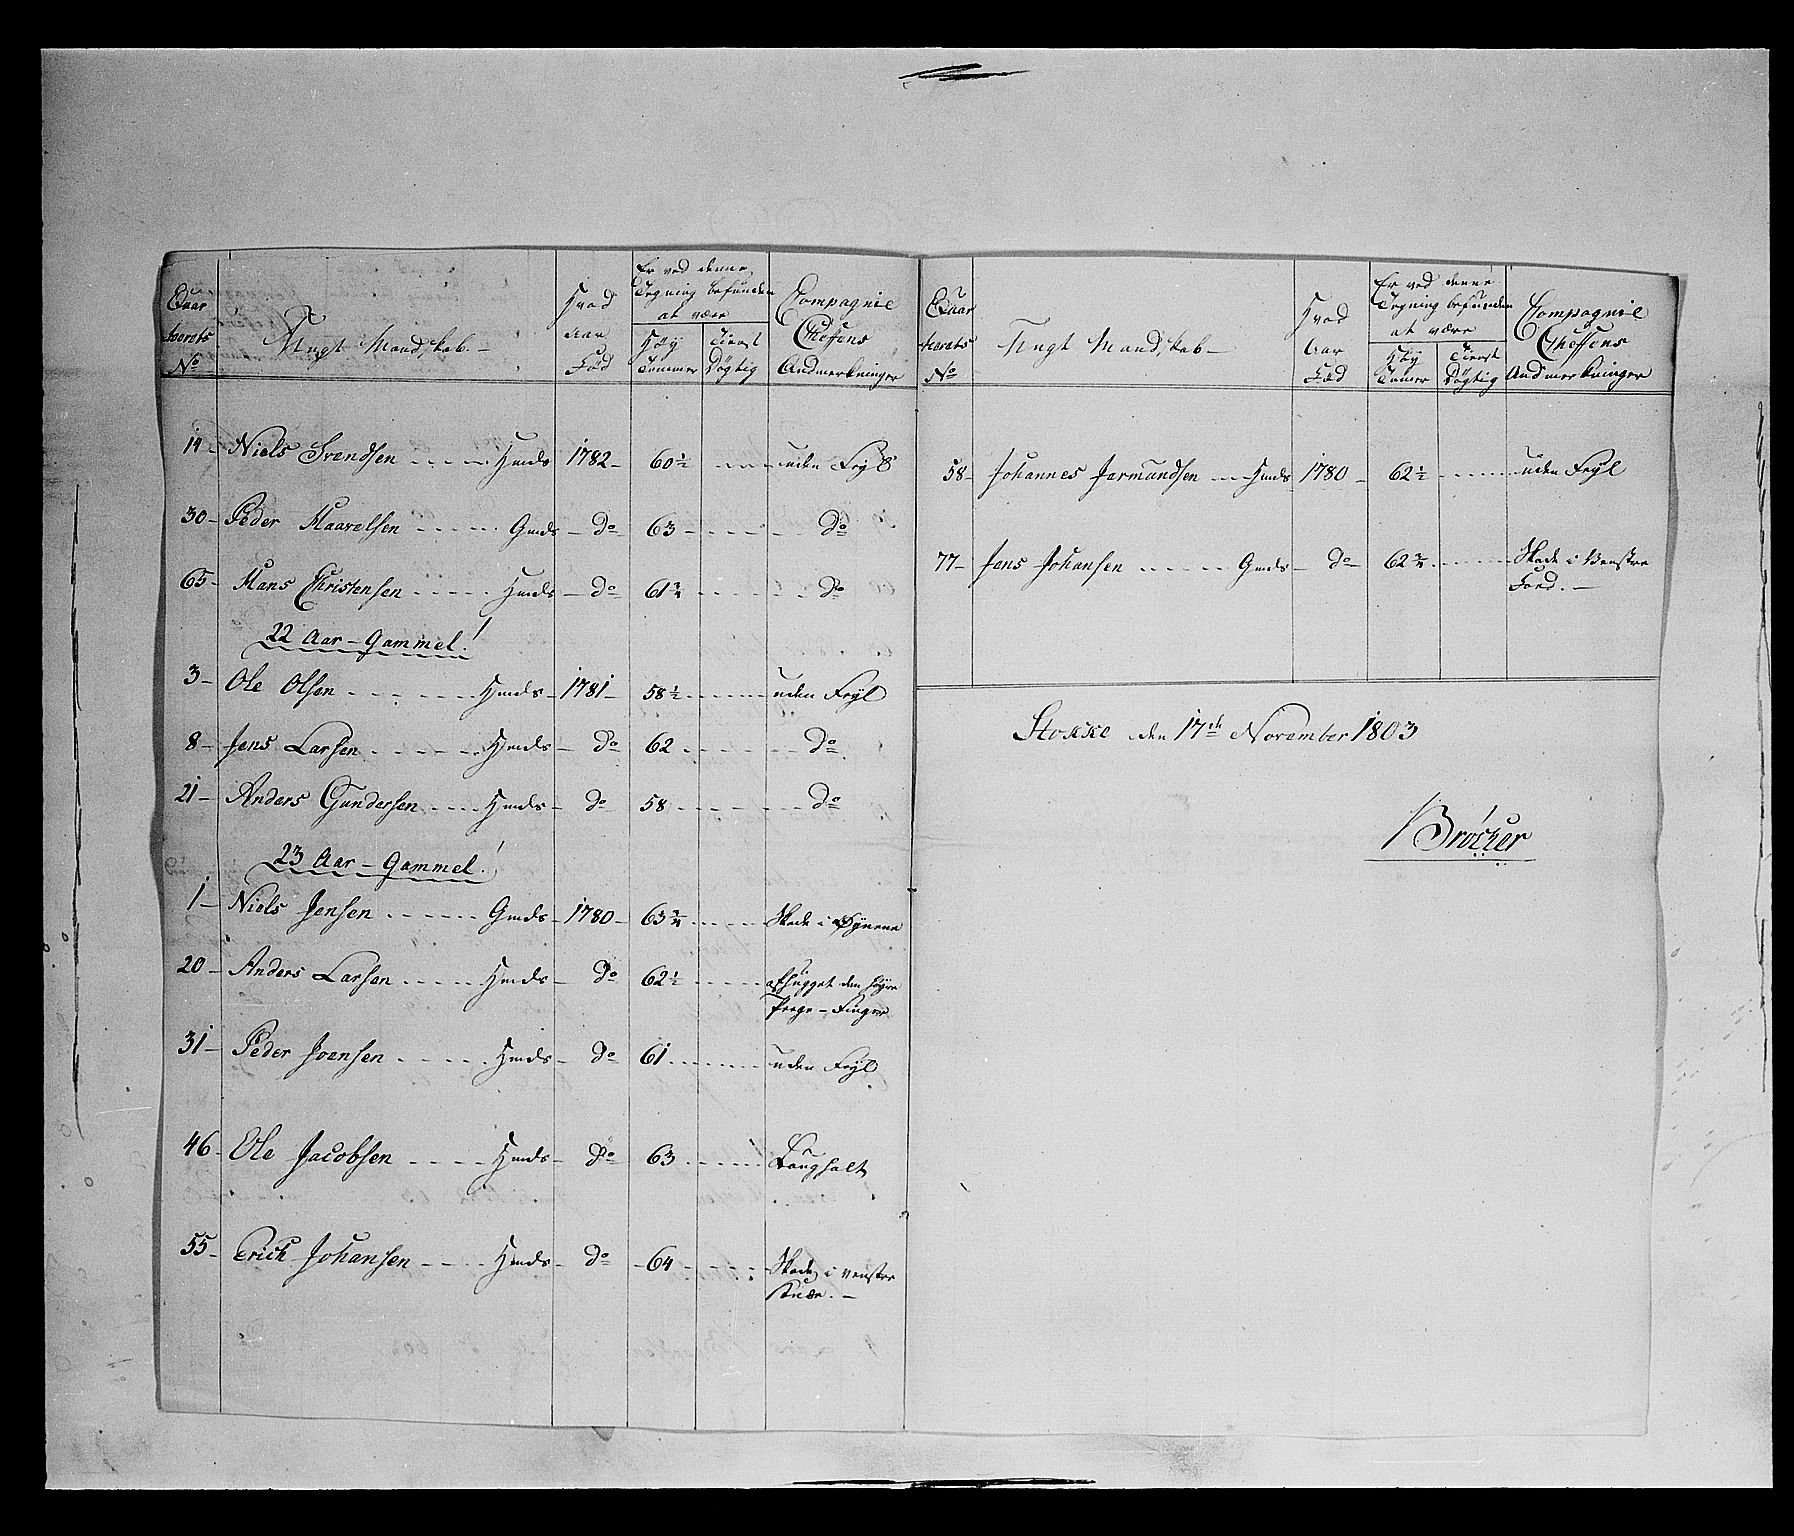 Quar
teerets
No
Ungt Mandskab
Hvad
Aar
Fød
Er ved denne
Tegning befunden
at være
Høy
Tommer
Tienst
Dygtig
Compagnie
Cheffens
Andmerkninger
14 Niels Svendsen Hmds 1782 60½ uden Feyl
30 Peder Haavelsen Gmds do 63 do
65 Hans Christensen Hmds do 61¾ do
22 Aar-Gammel
3 Ole Olsen Hmds 1781 58½ uden Feyl
8 Jens Larsen Hmds do 62 do
21 Anders Gundersen Hmds do 58 do
23 Aar-Gammel
1 Niels Jensen Gmds 1780 63¾ Skade i Øynene
20 Anders Larsen Hmds do 62½ afhugget den høyre
Pege-Finger
31 Peder Ivensen Hmds do 61 uden Feyl
46 Ole Jacobsen Hmds do 63
Langhalt
55 Erich Johansen Hmds do 64 Skade i venstre
Knæe.
Quar
teerets
No
Ungt Mandskab
Hvad
Aar
Fød
Er ved denne
Tegning befunden
at være
Høy
Tomer
Tienst
Dygtig
Compagnie
Cheffens
Andmerkninger
58 Johannes Jormundsen Hmds 1780 62½ uden Feyl
77 Jens Johansen Gmds do 62¾ Skade i Venstre
Foed.
Stokke den 17de November 1803
Bröcker